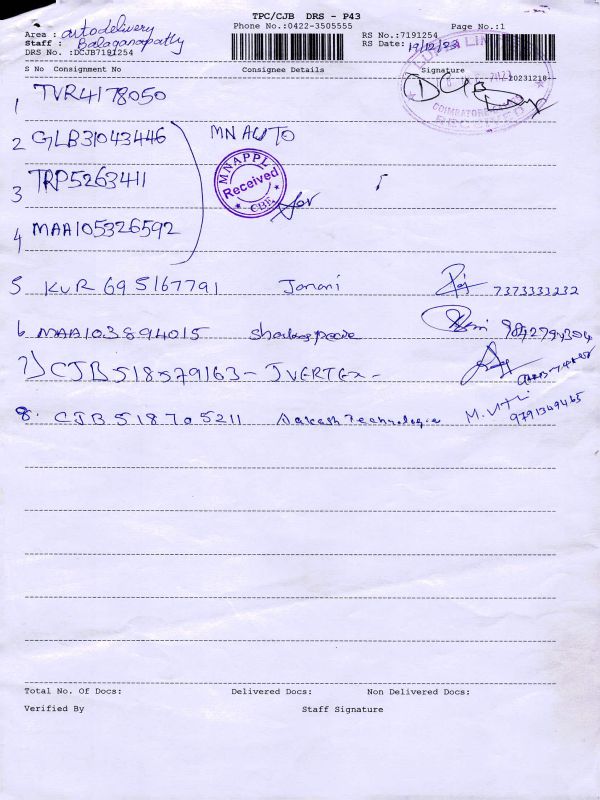 TPC/CJB DRS - P43
Area : autodelivery Phone No.:0422-3505555 Page No.:1
Staff : Balaganapathy RS No.:7191254
DRS No. :DCJB7191254 RS Date: 19/12/23
S No Consignment No Consignee Details Signature 20231218--
COIMBATORE
RECEIVED
1 TVR4178050
2 GLB31043446 MN AUTO
MNAPPL
Received
CBE
3 TRP5263411
4 MAA105326592
5 KUR 695167791 Janani 7373333232
6 MAA103894015
7) CJB518579163- IVERTEX-
8. CJB518705211 Aakash Technologie 9791349465
Total No. Of Docs: Delivered Docs: Non Delivered Docs:
Verified By Staff Signature